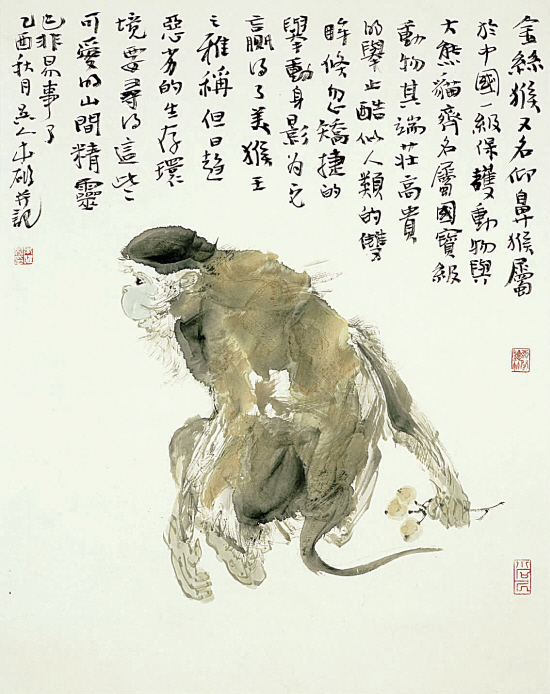 金絲猴又名仰鼻猴屬
於中國一級保護動物與
大熊貓齊名屬國寶級
動物其端莊高貴
的舉止酷似人類的雙
眸倏忽矯捷的
舉動身影為它
贏得了美猴王
之雅稱但日趨
惡劣的生存環
境要尋得這些
可愛的山間精靈
已非易事了
乙酉秋月 並記